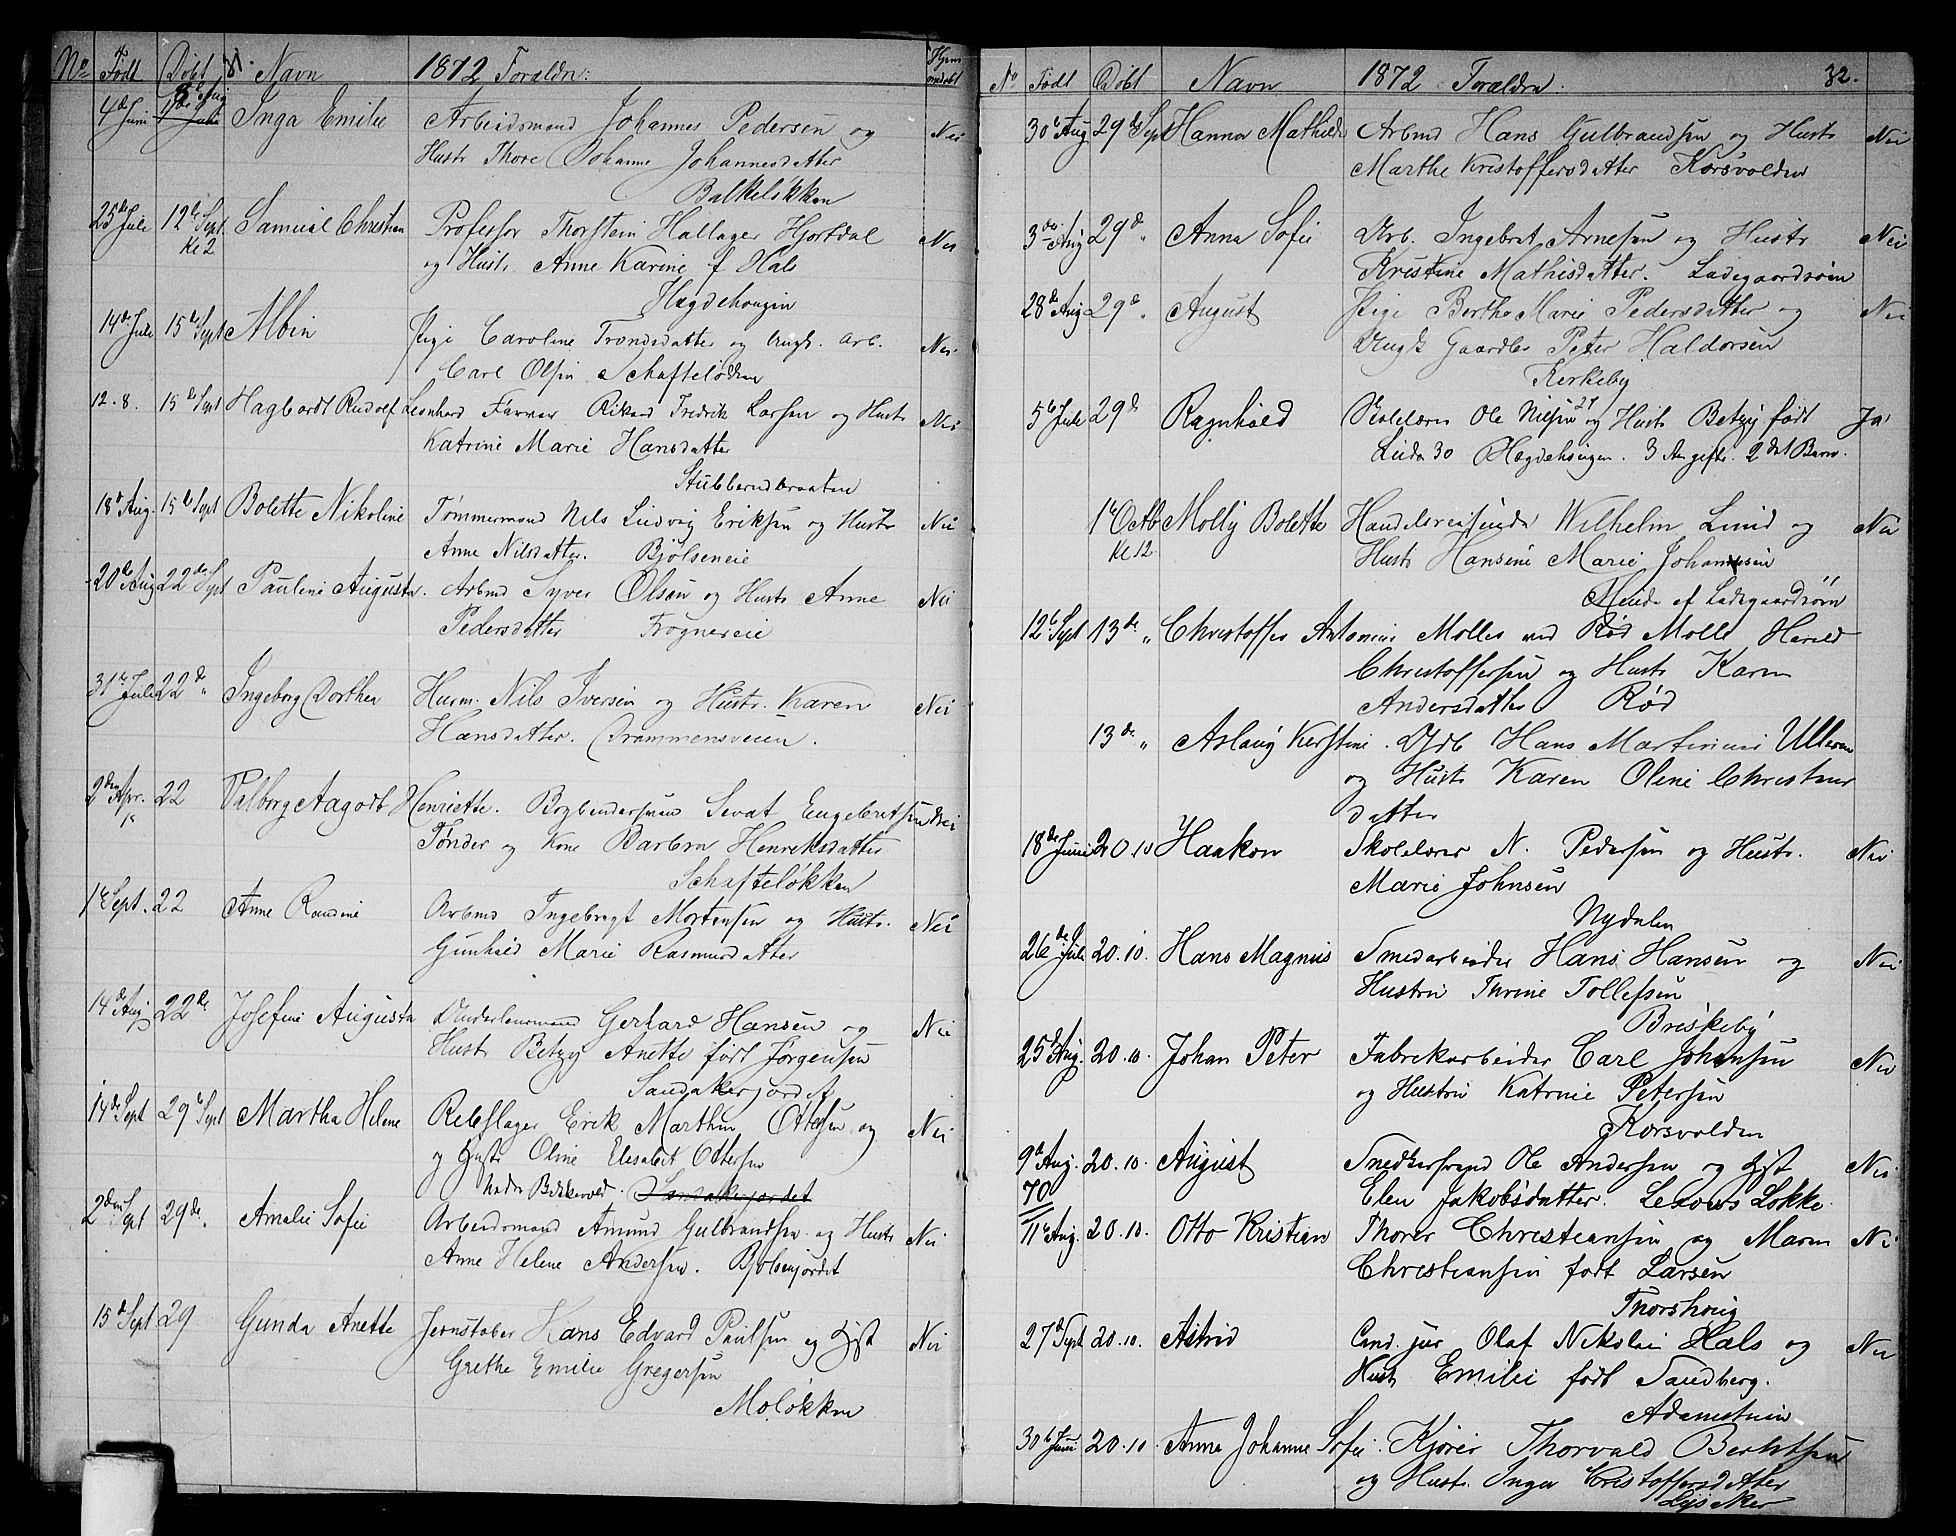 No Født Døbt 31. Navn 1872 Forældre: Hjem medøbt
8de Aug
4de Juni 1de Juli Inga Emilie Arbeidsmand Johannes Pedersen og Nei
Hustr Thore Johanne Johannesdatter
Balkeløkken
25de Juli 12te Sept Samuel Christian Professor Thorstein Hallager Hjortdal Nei
Kl 2 og Hustr Anne Karine f Hals
Hægdehougen
14de Juli 15de Sept Albin Pige Caroline Trondsdatter og Ungk. Arb. Nei
Carl Olsen Schafteløkken
12.8. 15de Sept Hagbardt Rudolf Leonhard Farver Rikard Fredrik Larsen og Hustr Nei
Katrine Marie Hansdatter
Stubberudbraaten
18de Aug. 15de Sept Bolette Nikoline Tømmermand Nils Ludvig Eriksen og Hustr Nei
Anne Nilsdatter. Bjølseneie
20de Aug 22de Sept Pauline Augusta. Arbmd Syver Olsen og Hustr Anne Nei
Pedersdatter Frognereie
31te Juli 22de " Ingeborg Dorthea Husm. Nils Iversen og Hustr. Karen Nei
Hansdatter. Drammensveien.
2den Apr. 22 Valborg Aagodt Henriette. Bogbindersvend Sevat Engebretsen Nei
Tønder og Kone Barbra Henriksdatter
Schafteløkken
1te Sept. 22 Anne Randine Arbmd Ingebregt Mortensen og Hustr. Nei
Gunhild Marie Rasmusdatter
14de Aug 22de Josefine Augusta Underlensmand Gerhard Hansen og Nei
Hustr Betzy Anette født Jørgensen
Sandakerjordet
14de Sept 29de Sept Martha Helene Rebslager Erik Marthin Ottesen og Nei
og Hustr Oline Elisabet Ottersen
Sandakerjordet
2den Sept 29de. Amalie Sofie Arbeidsmand Amund Gulbrandsen og Hustr Nei
Anne Helene Andersen. Bjølsenjordet
15de Sept 29 Gunda Anette Jernstøber Hans Edvard Paulsen og Hst Nei
Grethe Emilie Gregersen
Moløkken
No Født Døbt Navn 1872 Forældre. 32.
30te Aug 29de Sept Hanna Mathilde Arbmd Hans Gulbrandsen og Hustr Nei
Marthe Kristoffersdatter Korsvolden
3die Aug 29de " Anna Sofie Arb. Ingebret Arnesen og Hustr Nei
Kristine Mathisdatter. Ladegaardsøen
28de Aug 29de " August Pige Berthe Marie Pedersdatter og Nei
Ungk Gaardbr Peter Haldorsen
Kirkeby
5te Juli 29de Ragnhild Skolelærer Ole Nilsen 27 og Hustr Betzy født Ja
Linda 30 Hægdehougen. 3 Aar gifte. 2det Barn.
1te Octb Molly Bolette Handelsreisende Wilhelm Lund og Nei
Kl 12 Hustr Hansine Marie Johannesen
Munda af Ladegaardsøen
12te Sept 13de " Christoffer Antonius Møller ved Rød Mølle Harald
Christoffersen og Hustr Karen
Andersdatter Rød
13de " Aslaug Kerstine. Arb Hans Martinius Ulleren
og Hustr Karen Oline Christens
datter
18de Juni 20.10 Haakon Skolelærer N. Pedersen og Hustr. Nei
Marie Johnsen
Nydalen
26de Juli 20.10. Hans Magnus Smedarbeider Hans Hansen og Nei
Hustru Thrine Tollefsen
Briskeby
25de Aug. 20.10. Johan Peter Fabrikarbeider Carl Johansen Nei
og Hustru Katrine Petersen
Korsvolden
9de Aug. 20.10. August Snedkersvend Ole Andersen og Hst Nei
70 Elen Jakobsdatter. Lexows Løkke.
11te Aug. 20.10. Otto Kristian Thorer Christiansen og Maren Nei
Christiansen født Larsen
Thorshoug
27de Sept 20.10. Astrid Cand. jur Olaf Nikolai Hals og Nei
Hust Emilie født Sandberg.
Adamstuen
30te Juni 20.10. Anna Johanne Sofie. Kjører Thorvald Berntsen
og Hustr. Inga Cristoffersdatter
Lysaker